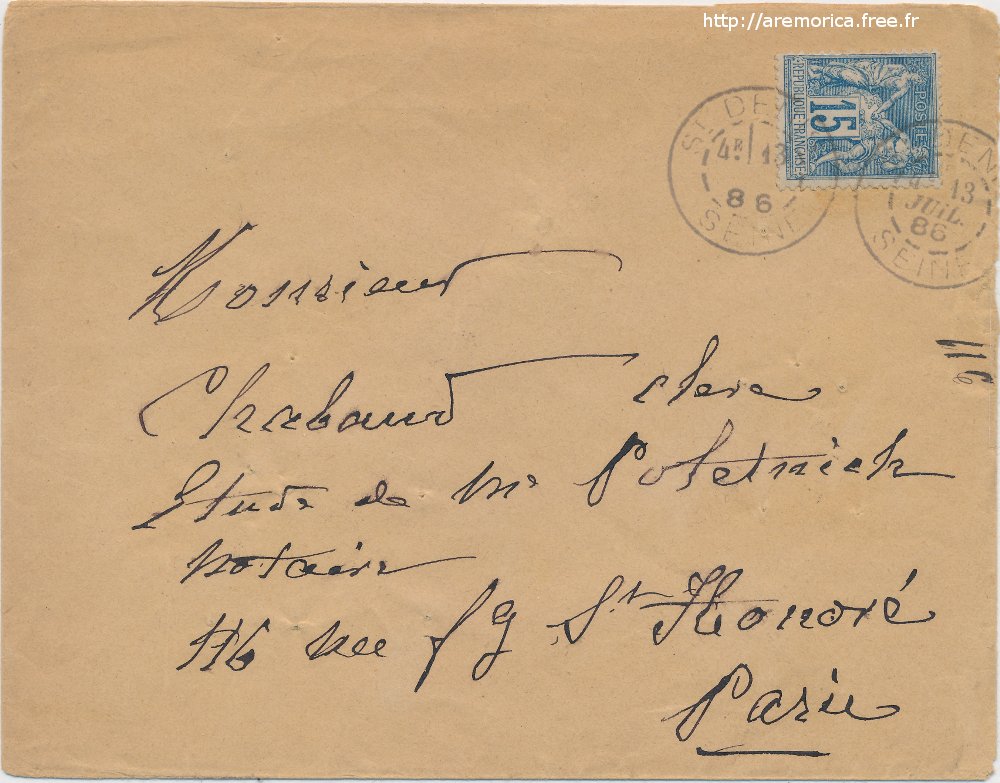 http://aremorica.free.fr
REPUBLIQUE FRANCAISE
15
POSTES
ST. DENIS
4E 13
86
SEINE
DENI
4E 13
JUIL.
86
SEINE
116
Monsieur
Chabaud clerc
Etude de Me Poletnich
notaire
116 rue fg St Honoré
Paris